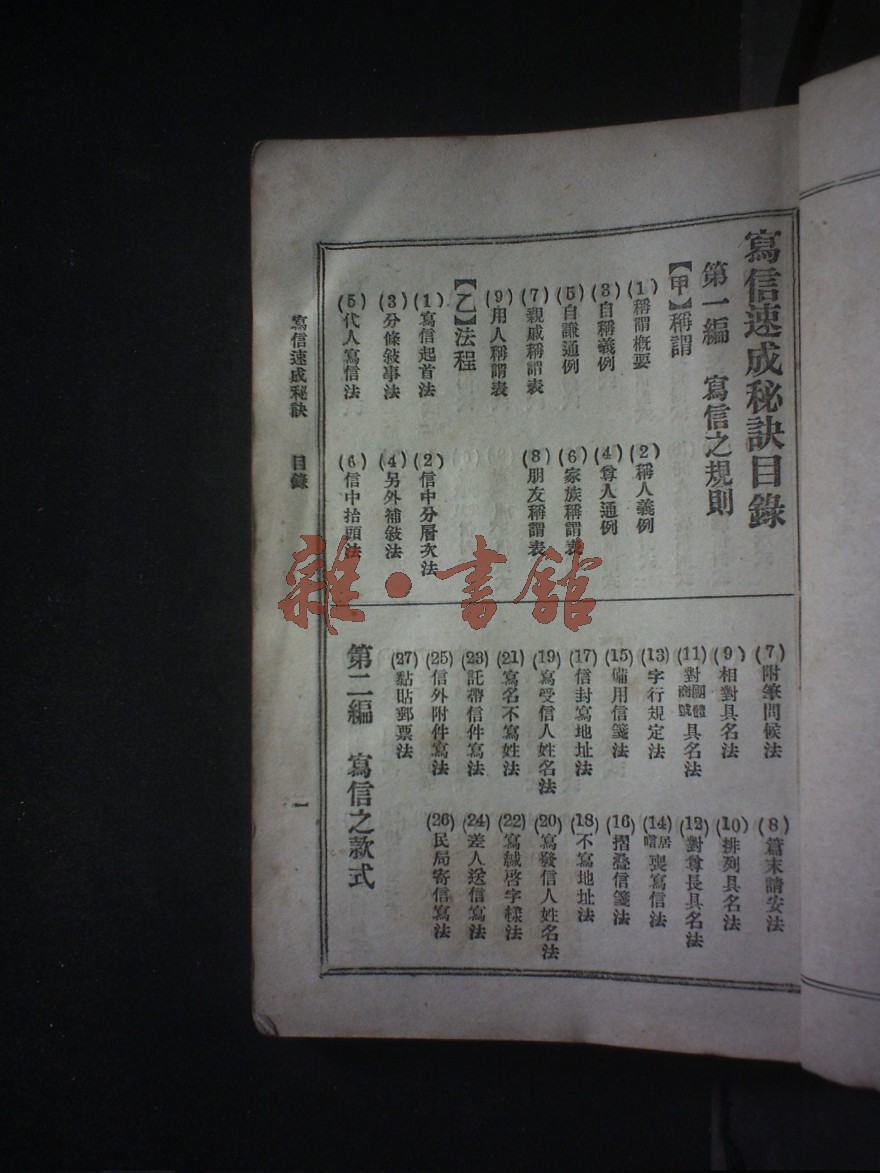 寫信速成秘訣目錄
第一編　寫信之規則
【甲】稱謂
(1)稱謂概要
(2)稱人義例
(3)自稱義例
(4)尊人通例
(5)自謙通例
(6)家族稱謂表
(7)親戚稱謂表
(8)朋友稱謂表
(9)用人稱謂表
【乙】法程
(1)寫信起首法
(2)信中分層次法
(3)分條敍事法
(4)另外補敍法
(5)代人寫信法
(6)信中抬頭法
(7)附筆問候法
(8)篇末請安法
(9)相對具名法
(10)排列具名法
(11)對團體商號具名法
(12)對尊長具名法
(13)字行規定法
(14)居喪寫信法
(15)備用信箋法
(16)摺疊信箋法
(17)信封寫地址法
(18)不寫地址法
(19)寫受信人姓名法
(20)寫發信人姓名法
(21)寫名不寫姓法
(22)寫緘啓字樣法
(23)託帶信件寫法
(24)差人送信寫法
(25)信外附件寫法
(26)民局寄信寫法
(27)黏貼郵票法
第二編　寫信之款式
寫信速成秘訣　目錄
一
雜·書館